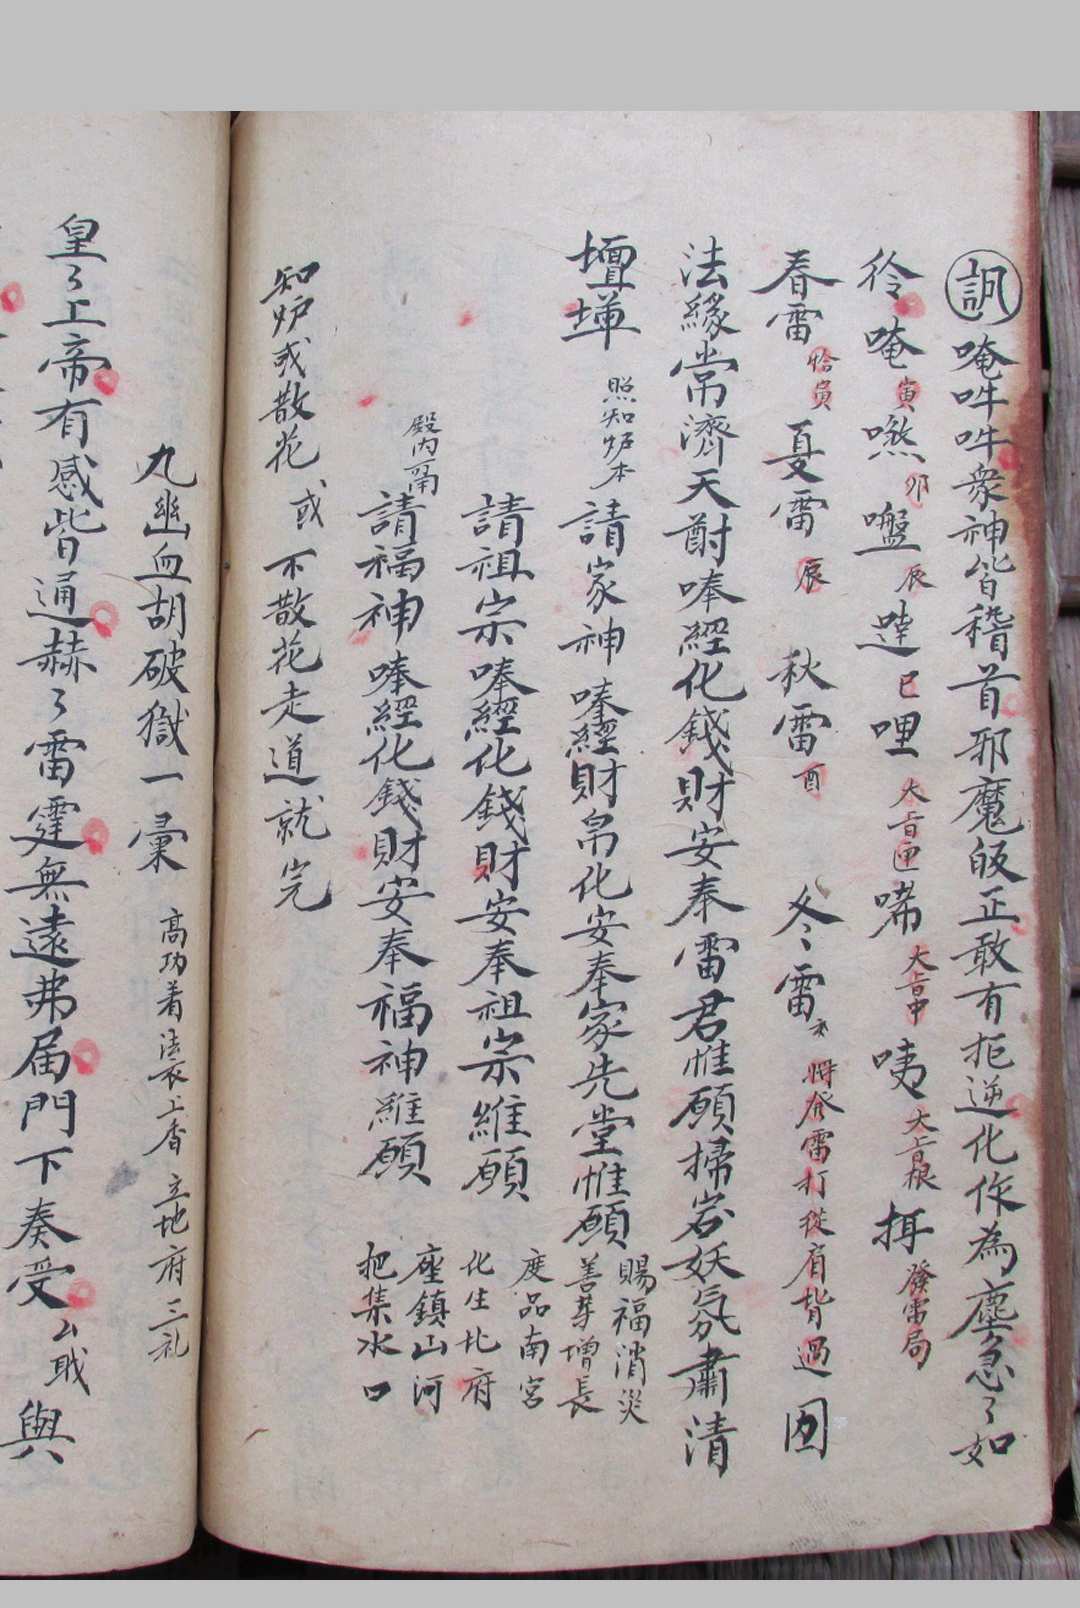 唵吽吽衆神皆稽首邪魔皈正敢有拒逆化作為塵急々如
唵寅 卯 辰 巳哩 大旨中咦大旨根 發雷局
春雷 寅 夏雷 辰 秋雷 酉 冬雷 將發雷打從肩背過
法緣常濟天酧唪經化錢財安奉雷君惟願掃宕妖氛肅清
壇墠 照知炉本 請家神唪經財帛化安奉家先堂惟願 賜福消災 善芽增長
請祖宗唪經化錢財安奉祖宗維願 度品南宮 化生北府
殿內 請福神唪經化錢財安奉福神維願 座鎮山河 把集水口
知炉或散花 或不散花走道就完
九幽血胡破獄一彙 高功着法衣上香 立地府三礼
皇々上帝有感皆通赫々雷霆無遠弗届門下奏受 與